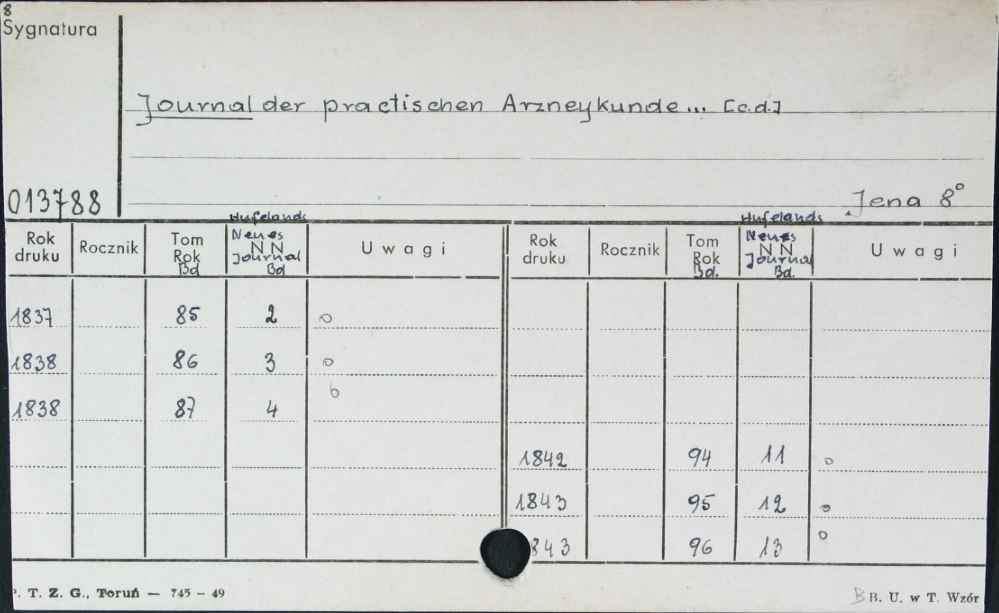 8
Sygnatura
Journal der practischen Arzneykunde... [c.d.]
013788
Jena 8°
Rok druku Rocznik Tom Rok Bd Hufelands Neues NN Journal Bd Uwagi Rok druku Rocznik Tom Rok Bd. Hufelands Neues NN Journal Bd. Uwagi
1837 85 2 o
1838 86 3 o
1838 87 4 o
1842 94 11 o
1843 95 12 o
843 96 13 o
. T. Z. G., Toruń — 745 - 49
B B. U. w T. Wzór